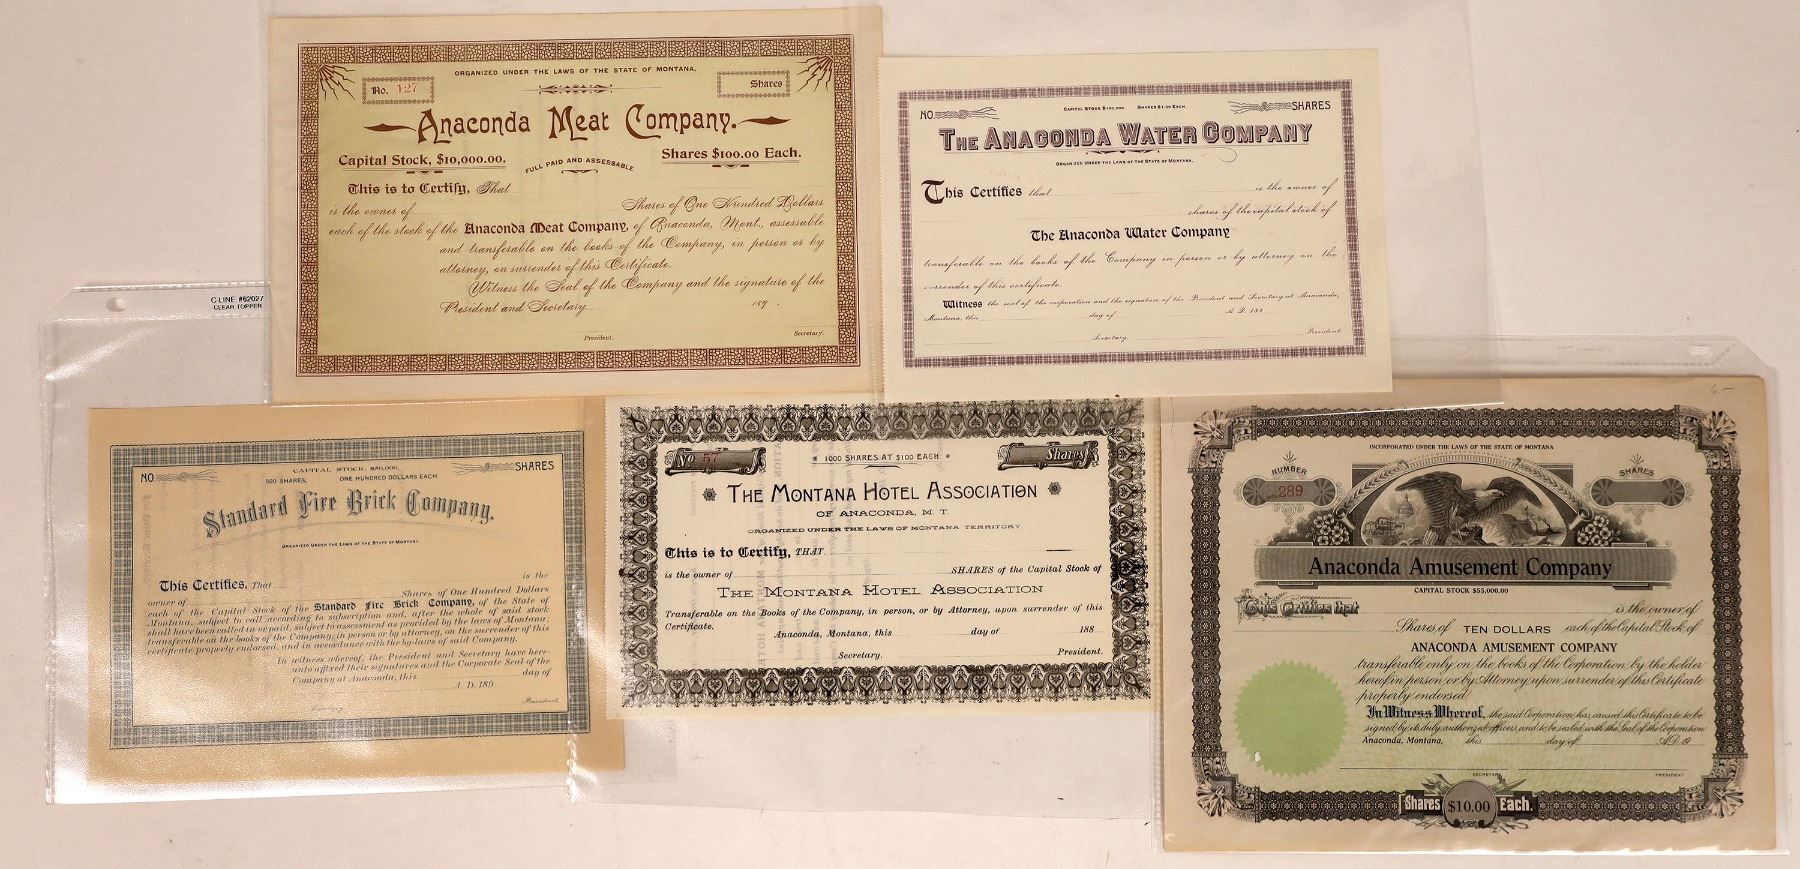 ORGANIZED UNDER THE LAWS OF THE STATE OF MONTANA.
No. 127
Shares
Anaconda Meat Company.
Capital Stock, $10,000.00.
FULL PAID AND ASSESSABLE
Shares $100.00 Each.
This is to Certify, That
is the owner of Shares of One Hundred Dollars
each of the stock of the Anaconda Meat Company, of Anaconda, Mont., assessable
and transferable on the books of the Company, in person or by
attorney, on surrender of this Certificate.
Witness the Seal of the Company and the signature of the
President and Secretary 189 .
President.
Secretary.
NO.
CAPITAL STOCK $100,000. SHARES $1.00 EACH.
SHARES
THE ANACONDA WATER COMPANY
ORGANIZED UNDER THE LAWS OF THE STATE OF MONTANA.
This Certifies that is the owner of
shares of the capital stock of
The Anaconda Water Company
transferable on the books of the Company in person or by attorney on the
surrender of this certificate.
Witness the seal of the corporation and the signature of the President and Secretary at Anaconda,
Montana, this day of A.D. 189
Secretary.
President.
C-LINE #62027
CLEAR TOPPER
NO.
CAPITAL STOCK, $50,000.
500 SHARES, ONE HUNDRED DOLLARS EACH.
SHARES
Standard Fire Brick Company.
ORGANIZED UNDER THE LAWS OF THE STATE OF MONTANA
This Certifies, That is the
owner of Shares of One Hundred Dollars
each of the Capital Stock of the Standard Fire Brick Company, of the State of
Montana, subject to call according to subscription and, after the whole of said stock
shall have been called in or paid, subject to assessment as provided by the laws of Montana;
transferable on the books of the Company, in person or by attorney, on the surrender of this
certificate properly endorsed, and in accordance with the by-laws of said Company.
In witness whereof, the President and Secretary have here-
unto affixed their signatures and the Corporate Seal of the
Company at Anaconda, this day of
A. D. 189
Secretary
President.
No 57
1000 SHARES AT $100 EACH
Shares
THE MONTANA HOTEL ASSOCIATION
OF ANACONDA, M. T.
ORGANIZED UNDER THE LAWS OF MONTANA TERRITORY
This is to Certify, THAT
is the owner of SHARES of the Capital Stock of
THE MONTANA HOTEL ASSOCIATION
Transferable on the Books of the Company, in person, or by Attorney, upon surrender of this
Certificate.
Anaconda, Montana, this day of 188
Secretary.
President.
6-
INCORPORATED UNDER THE LAWS OF THE STATE OF MONTANA
NUMBER
289
SHARES
Anaconda Amusement Company
CAPITAL STOCK $55,000.00
This Certifies that is the owner of
Shares of TEN DOLLARS each of the Capital Stock of
ANACONDA AMUSEMENT COMPANY
transferable only on the books of the Corporation by the holder
hereof in person or by Attorney upon surrender of this Certificate
properly endorsed.
In Witness Whereof, the said Corporation has caused this Certificate to be
signed by its duly authorized officers and to be sealed with the Seal of the Corporation
Anaconda, Montana, this day of A.D. 19
SECRETARY
PRESIDENT
Shares $10.00 Each.